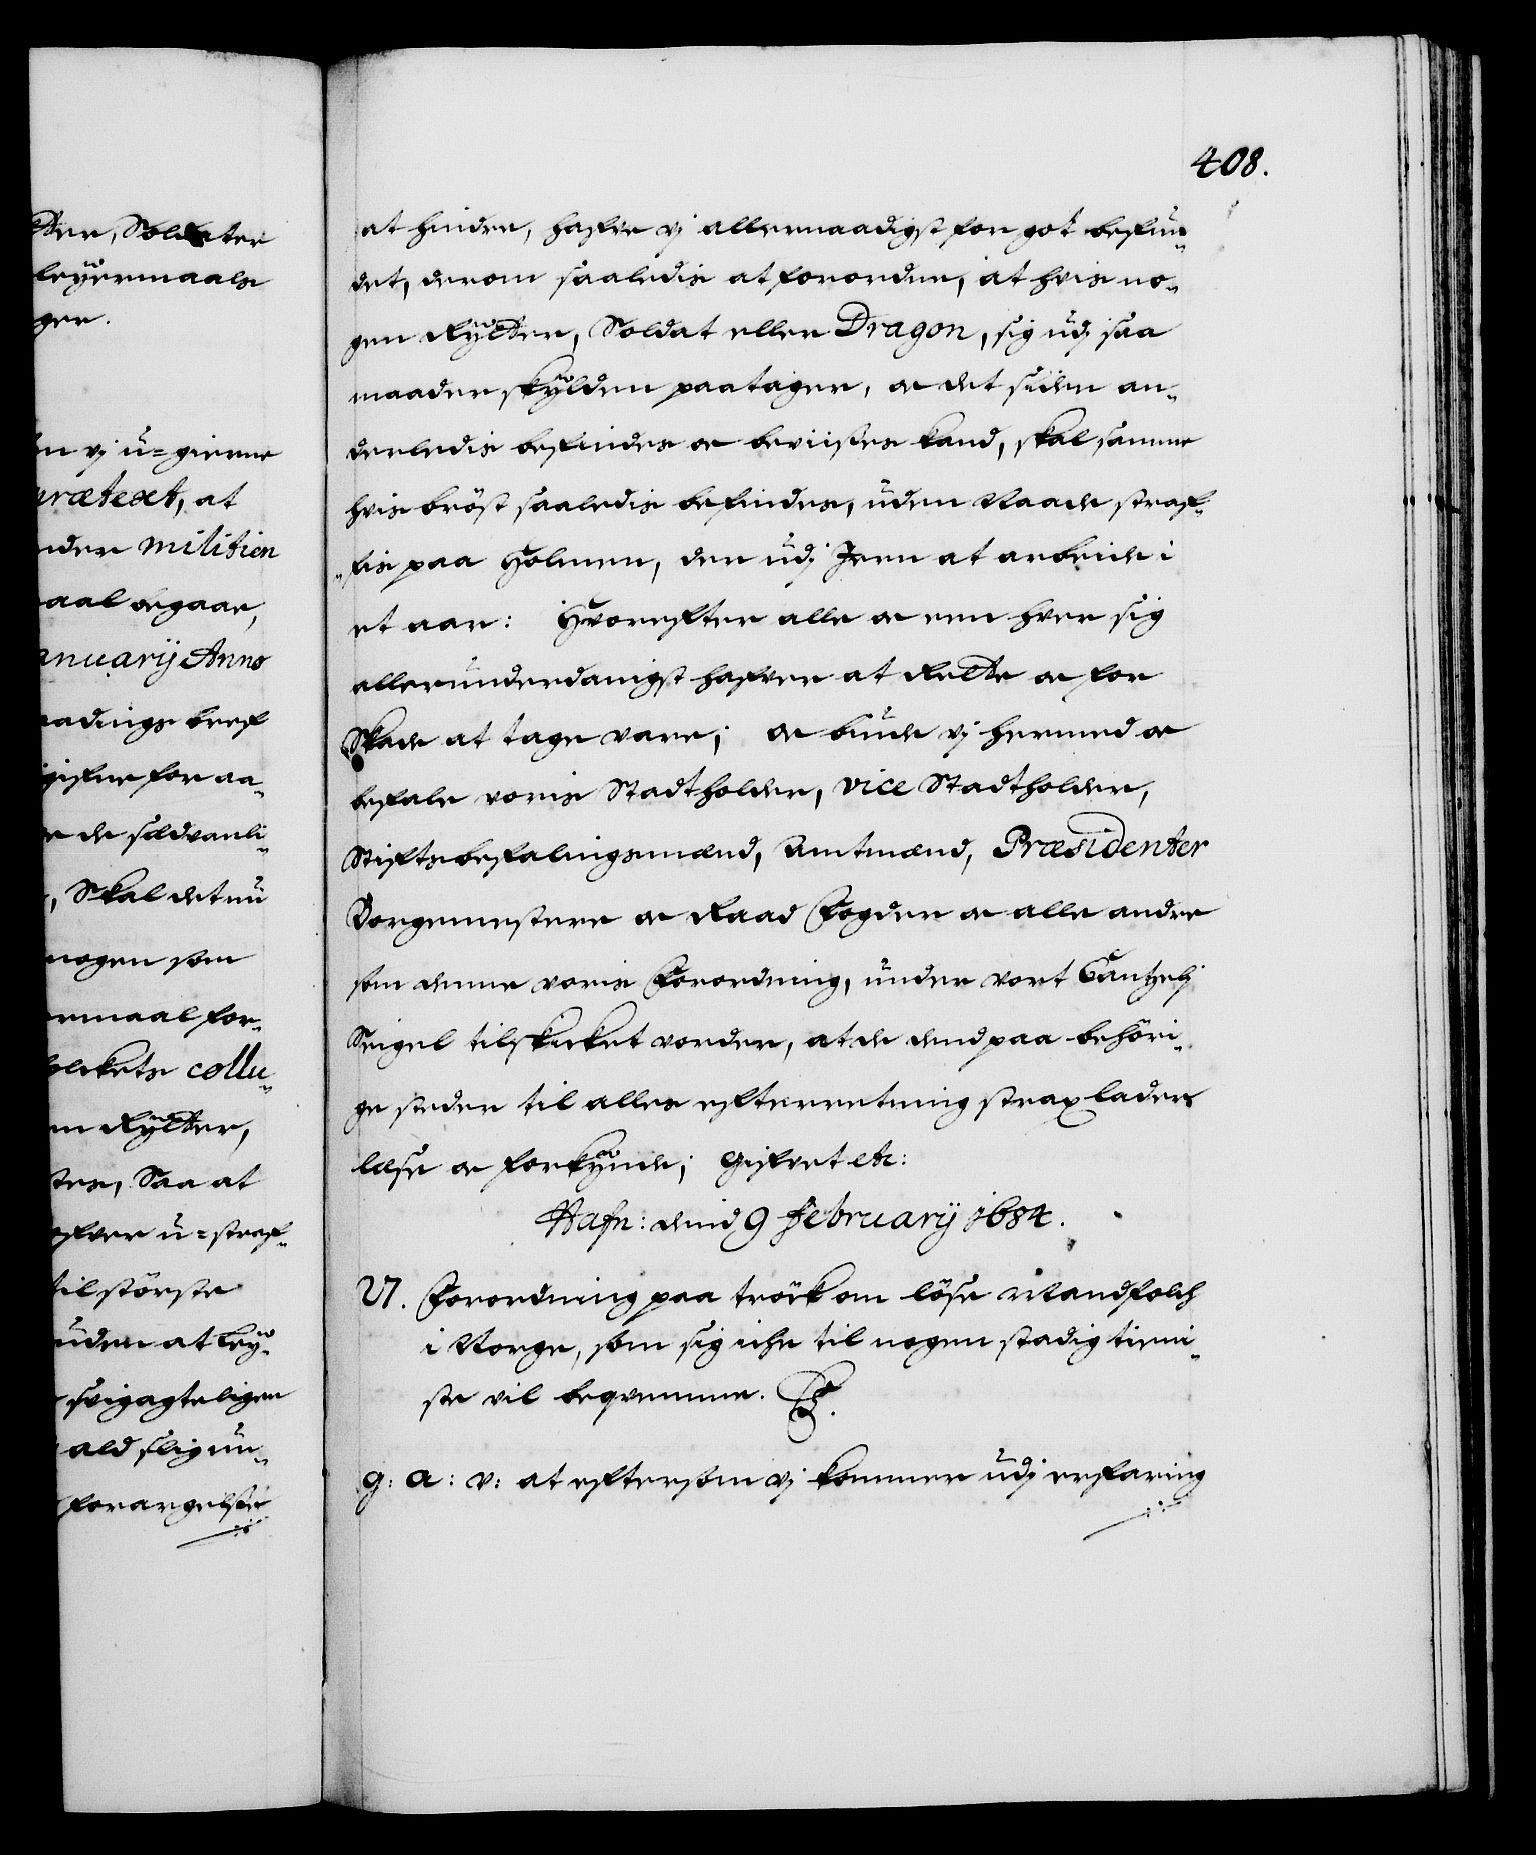 ter, Soldater
leyermaals
ger.
en vj u-gierne
prætext, at
nder militien
aal begaar,
anuarij Anno
adings bref
gifne for aa-
e de sædvanli-
, Skal det nu
nogen som
rmaal for-
lckets collu-
n Rÿtter,
tes, Saa at
fver u-straf-
til störste
uden at ley-
svigagteligen
ald slig un-
forargelse
408.
at hindre, hafve vj allernaadigst for got befun-
det, derom saaledis at forordne, at hvis no-
gen Rÿtter, Soldat eller Dragon, sig udj saa
maader skÿlden paatager, oc det siden an-
derledis befindes oc beviises kand, skal samme
hvis bröst saaledis befindes, uden Naade straf-
„fis paa Holmen, der udj Jern at arbeide i
et aar: Hvorefter alle oc een hver sig
allerunderdanigst hafver at Rette oc for
Skade at tage vare; oc biude vj hermed oc
befale voris Stadtholder, vice Stadtholder,
Stiftsbefalingsmænd, Amtmænd, Præsidenter
Borgemestere oc Raad Fogder oc alle andre
som denne voris Forordning, under vort Cantzelj
Seigel tilskicket vorder, at de dend paa behöri-
ge steder til alles efterretning strax lader
læse oc forkÿnde; Gifvet etc:
Hafn: dend 9 februarij 1684.
Forordning paa tröck om löse Mandfolch
i Norge, som sig iche til nogen stadig tieni-
ste vil beqvemme.
G: A: V: at eftersom vj kommer udj erfaring